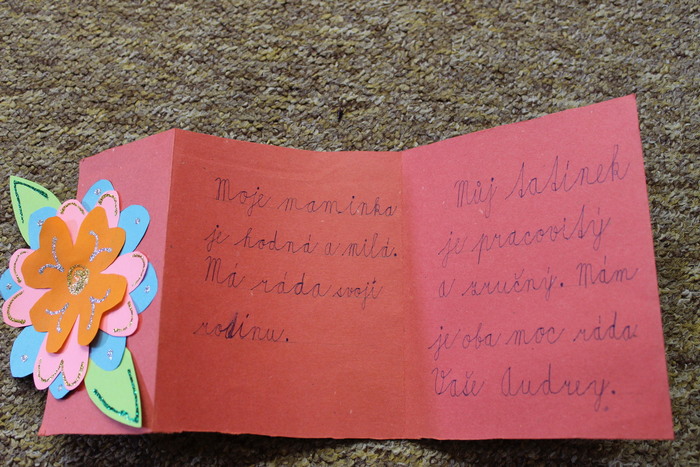 Moje maminka
je hodná a milá.
Má ráda svoji
rodinu.
Můj tatínek
je pracovitý
a zručný. Mám
je oba moc ráda
Vaše Audrey.